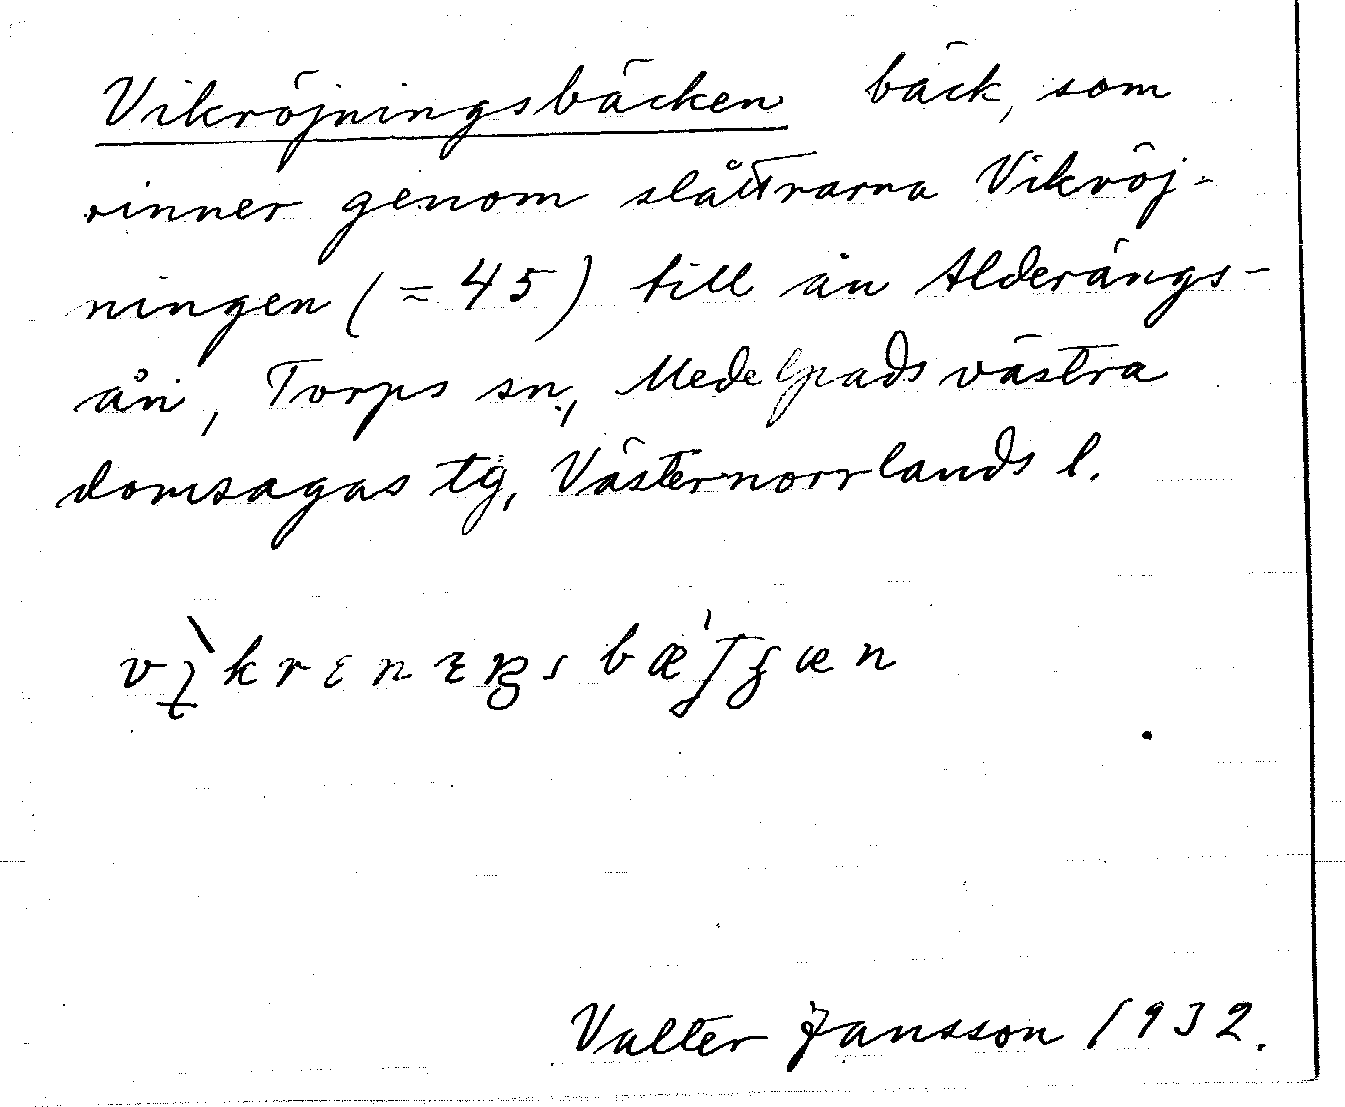 Vikröjningsbäcken bäck, som
rinner genom slåttrarna Vikröj-
ningen (=45) till ån Alderängs-
ån, Torps sn, Medelpads västra
domsagas tg, Västernorrlands l.
Valter Jansson 1932.